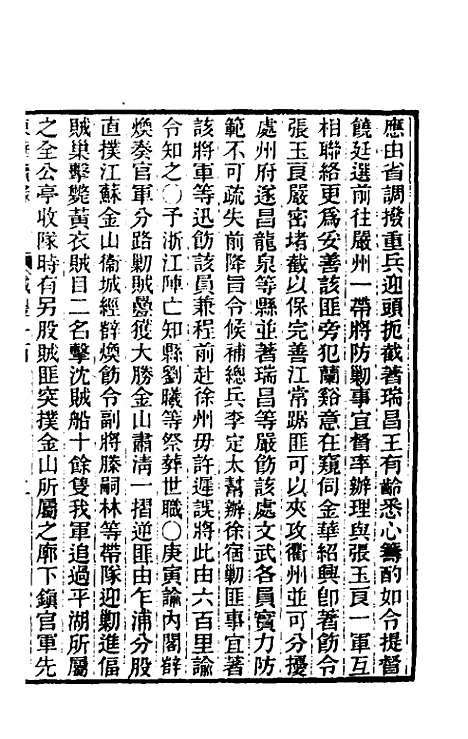 應由省調撥重兵迎頭扼截著瑞昌王有齡悉心籌酌如令提督
饒廷選前往嚴州一帶將防勦事宜督率辦理與張玉良一軍互
相聯絡更為妥善該匪旁犯蘭谿意在窺伺金華紹興卽著飭令
張玉良嚴密堵截以保完善江常踞匪可以夾攻衢州並可分擾
處州府遂昌龍泉等縣並著瑞昌等嚴飭該處文武各員實力防
範不可疏失前降旨令候補總兵李定太幫辦徐宿勦匪事宜著
該將軍等迅飭該員兼程前赴徐州毋許遲誤將此由六百里諭
令知之〇予浙江陣亡知縣劉曦等祭葬世職〇庚寅諭內閣薛
煥奏官軍分路勦賊疊獲大勝金山肅清一摺逆匪由乍浦分股
直撲江蘇金山衞城經薛煥飭令副將滕嗣林等帶隊迎勦進偪
賊巢擊斃黃衣賊目二名擊沈賊船十餘隻我軍追過平湖所屬
之全公亭收隊時有另股賊匪突撲金山所屬之廊下鎮官軍先